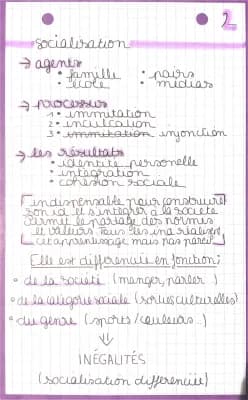 2
socialisation
→ agents
• famille • pairs
• école • médias
→ processus
1• immitation
2• inculcation
3• immitation injonction
→ les résultats
• identité personelle
• intégration
• cohésion sociale
indispensable pour construire
son id et s'intégrer à la société
permet le partage des normes
et valeurs. Tous les ind réalisent
cet apprentissage mais pas pareil
Elle est différenciée en fonction :
• de la société (manger, parler..)
• de la catégorie sociale (sorties culturelles)
• du genre (sports/couleurs...)
⇓
INÉGALITÉS
(socialisation différenciée)